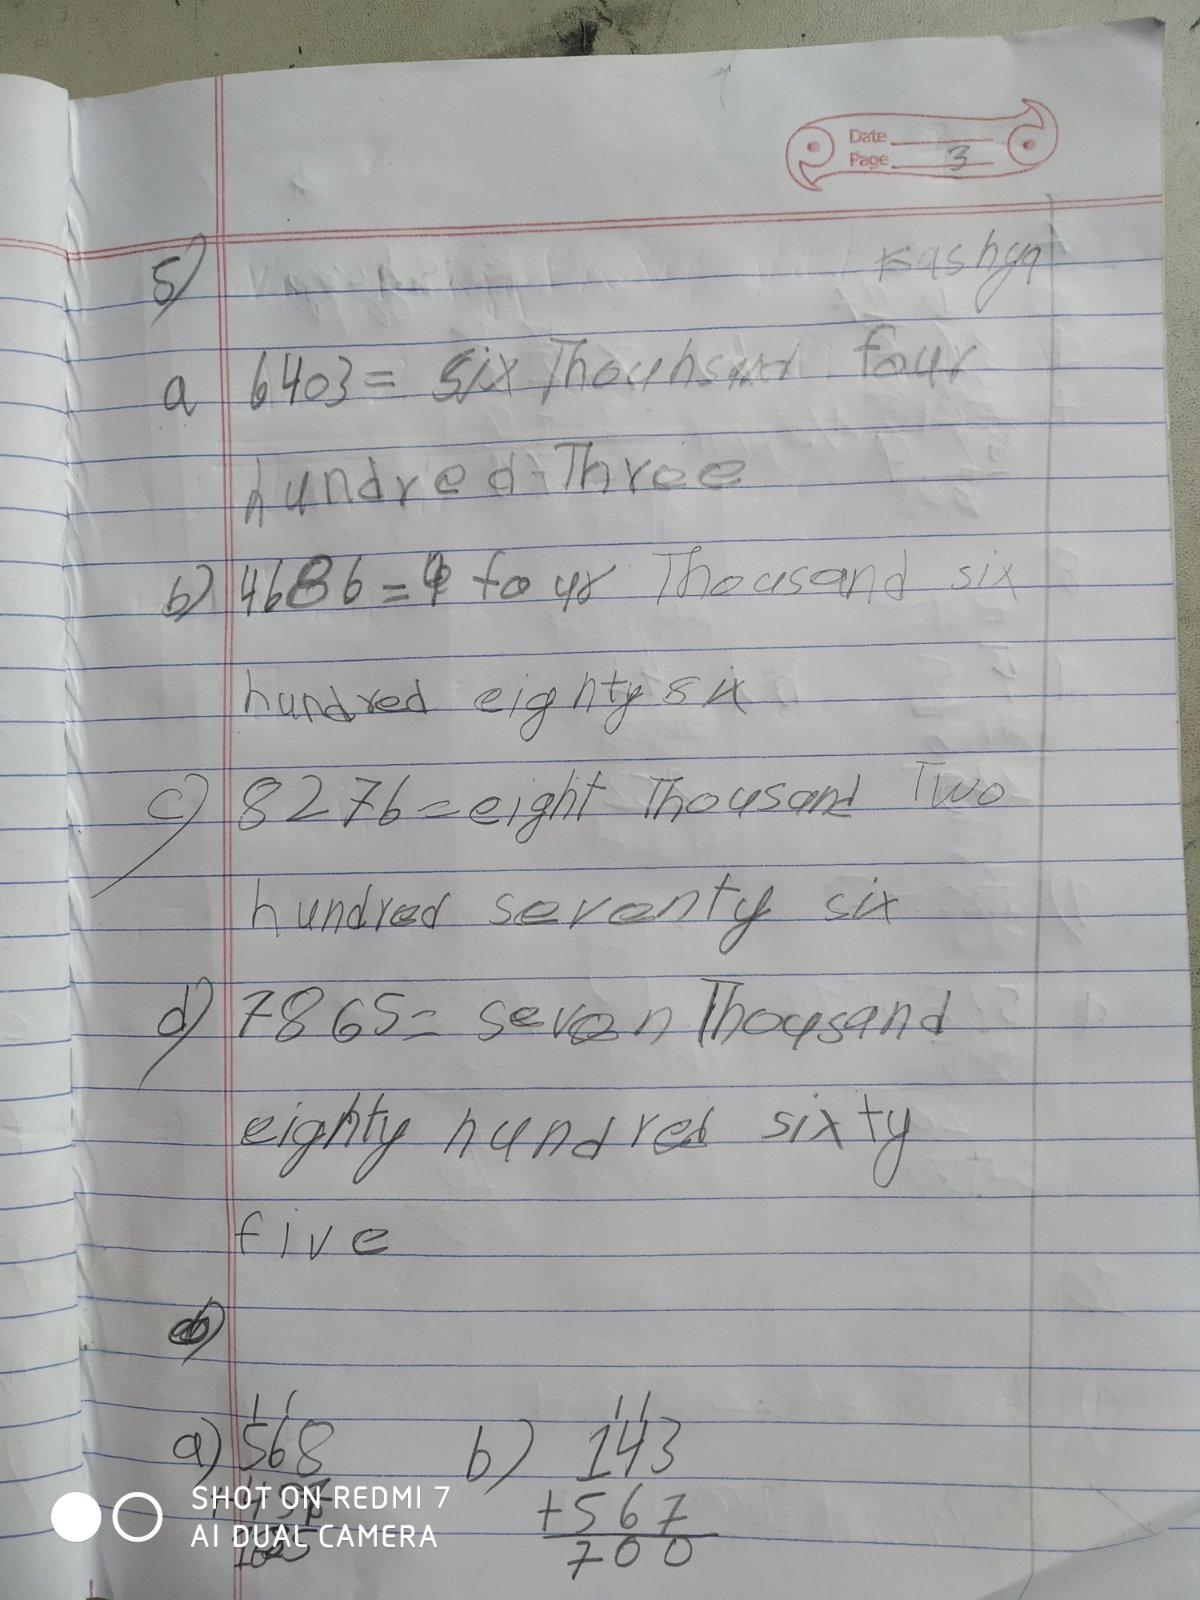 Date
Page 3
5)
a 6403 = six Thouhsand four
hundred Three
b) 4686 = four Thousand six
hundred eighty six
c) 8276 = eight Thousand Two
hundred seventy six
d) 7865 = seven Thousand
eighty hundred sixty
five
1 1 1 1
a) 568 b) 143
+ 567
700
SHOT ON REDMI 7
AI DUAL CAMERA